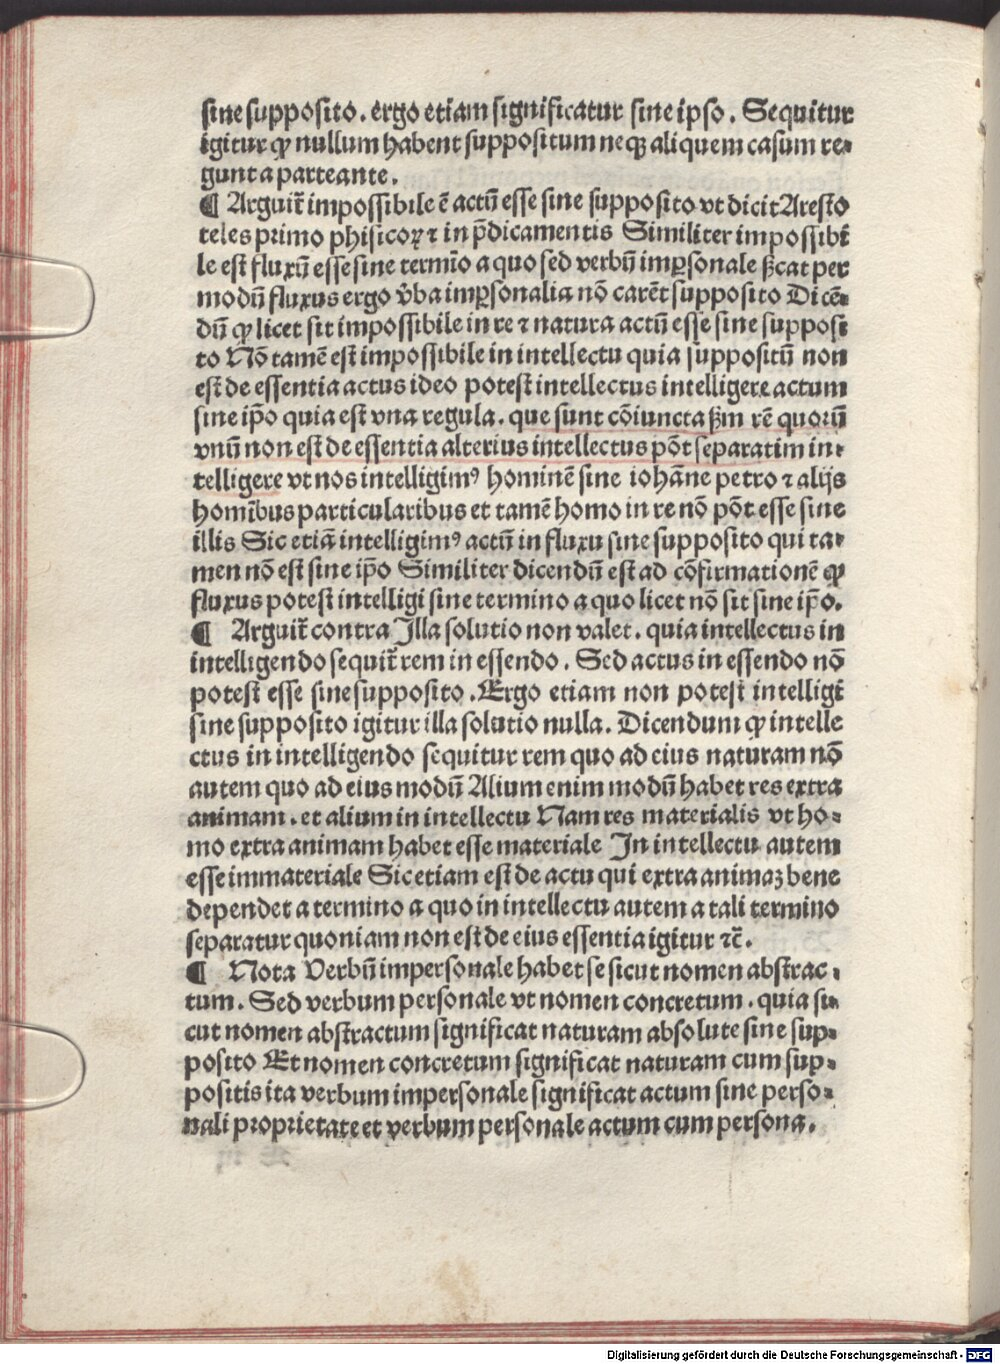 sine supposito. ergo etiam significatur sine ipso. Sequitur
igitur ꝙ nullum habent suppositum neqꝫ aliquem casum re⸗
gunt a parte ante.
¶ Arguit̃ impossibile ẽ actũ esse sine supposito vt dicit Aresto
teles primo phisicoꝝ ⁊ in p̃dicamentis Similiter impossibi
le est fluxũ esse sine termĩo a quo sed verbũ imꝑsonale ẞcat per
modũ fluxus ergo v̾ba imꝑsonalia nõ carẽt supposito Dicẽ⸗
dũ ꝙ licet sit impossibile in re ⁊ natura actũ esse sine supposi
to Nõ tamẽ est impossibile in intellectu quia suppositũ non
est de essentia actus ideo potest intellectus intelligere actum
sine ip̃o quia est vna regula. que sunt cõiuncta ẞm rẽ quorũ
vnũ non est de essentia alterius intellectus põt separatim in⸗
telligere vt nos intelligimꝰ hominẽ sine iohãne petro ⁊ alijs
homĩbus particularibus et tamẽ homo in re nõ põt esse sine
illis Sic etiã intelligimꝰ actũ in fluxu sine supposito qui ta⸗
men nõ est sine ip̃o Similiter dicendũ est ad cõfirmationẽ ꝙ
fluxus potest intelligi sine termino a quo licet nõ sit sine ip̃o.
¶ Arguit̃ contra Illa solutio non valet. quia intellectus in
intelligendo sequit̃ rem in essendo. Sed actus in essendo nõ
potest esse sine supposito. Ergo etiam non potest intelligi
sine supposito igitur illa solutio nulla. Dicendum ꝙ intelle
ctus in intelligendo sequitur rem quo ad eius naturam nõ
autem quo ad eius modũ Alium enim modũ habet res extra
animam. et alium in intellectu Nam res materialis vt ho⸗
mo extra animam habet esse materiale In intellectu autem
esse immateriale Sic etiam est de actu qui extra animaꝫ bene
dependet a termino a quo in intellectu autem a tali termino
separatur quoniam non est de eius essentia igitur ⁊c̃.
¶ Nota Verbũ impersonale habet se sicut nomen abstrac⸗
tum. Sed verbum personale vt nomen concretum. quia si⸗
cut nomen abstractum significat naturam absolute sine sup⸗
posito Et nomen concretum significat naturam cum sup⸗
positis ita verbum impersonale significat actum sine perso⸗
nali proprietate et verbum personale actum cum persona.
Digitalisierung gefördert durch die Deutsche Forschungsgemeinschaft - DFG